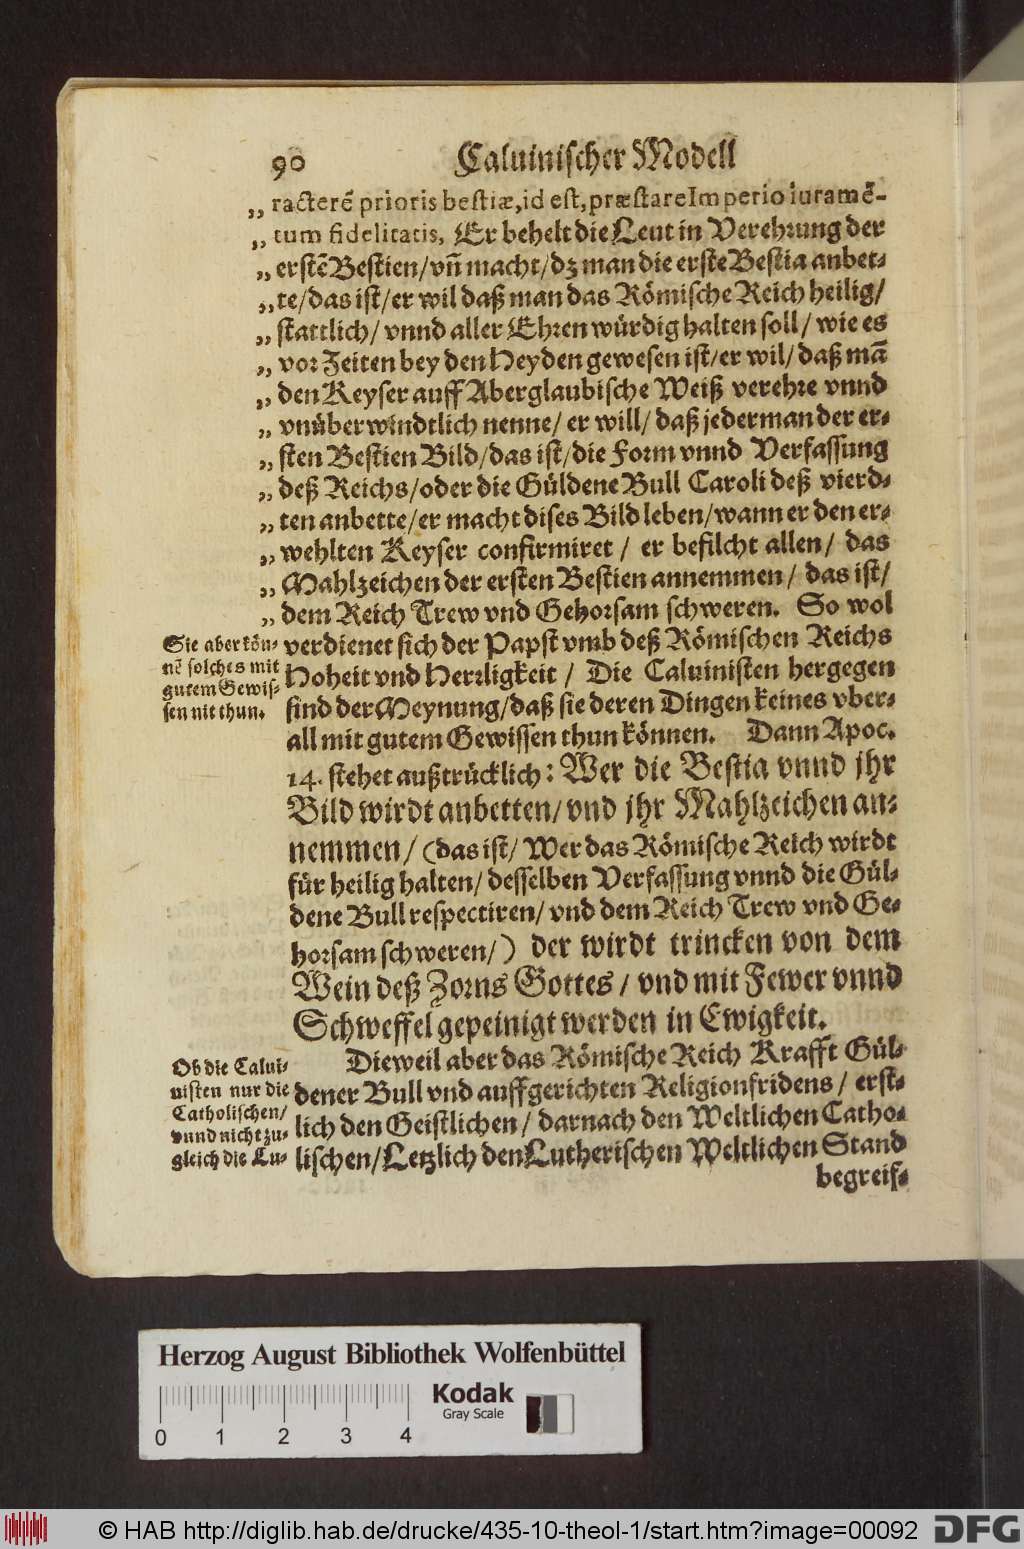 90 Caluinischer Modell
„ racterẽ prioris bestiæ, id est, præstare Imperio iuramẽ-
„ tum fidelitatis, Er behelt die Leut in Verehrung der
„ erstẽ Bestien/ vñ macht/ dz man die erste Bestia anbet-
„ te/ das ist/ er wil daß man das Römische Reich heilig/
„ stattlich/ vnnd aller Ehren würdig halten soll/ wie es
„ vor Zeiten bey den Heyden gewesen ist/ er wil/ daß mã
„ den Keyser auff Aberglaubische Weiß verehre vnnd
„ vnüberwindtlich nenne/ er will/ daß jederman der er-
„ sten Bestien Bild/ das ist/ die Form vnnd Verfassung
„ deß Reichs/ oder die Güldene Bull Caroli deß vierd-
„ ten anbette/ er macht dises Bild leben/ wann er den er-
„ wehlten Keyser confirmiret/ er befilcht allen/ das
„ Mahlzeichen der ersten Bestien annemmen/ das ist/
„ dem Reich Trew vnd Gehorsam schweren. So wol
verdienet sich der Papst vmb deß Römischen Reichs
Hoheit vnd Herrligkeit/ Die Caluinisten hergegen
sind der Meynung/ daß sie deren Dingen keines vber-
all mit gutem Gewissen thun können. Dann Apoc.
14. stehet außtrücklich: Wer die Bestia vnnd jhr
Bild wirdt anbetten/ vnd jhr Mahlzeichen an-
nemmen/ (das ist/ Wer das Römische Reich wirdt
für heilig halten/ desselben Verfassung vnnd die Gül-
dene Bull respectiren/ vnd dem Reich Trew vnd Ge-
horsam schweren/) der wirdt trincken von dem
Wein deß Zorns Gottes/ vnd mit Fewer vnnd
Schweffel gepeinigt werden in Ewigkeit.
Sie aber kön-
nẽ solches mit
gutem Gewis-
sen nit thun.
Dieweil aber das Römische Reich Krafft Gül-
dener Bull vnd auffgerichten Religionfridens/ erst-
lich den Geistlichen/ darnach den Weltlichen Catho-
lischen/ Letzlich den Lutherischen Weltlichen Stand
begreif-
Ob die Calui-
nisten nur die
Catholischen/
vnnd nicht zu-
gleich die Lu-
Herzog August Bibliothek Wolfenbüttel
Kodak
Gray Scale
0 1 2 3 4
© HAB http://diglib.hab.de/drucke/435-10-theol-1/start.htm?image=00092
DFG